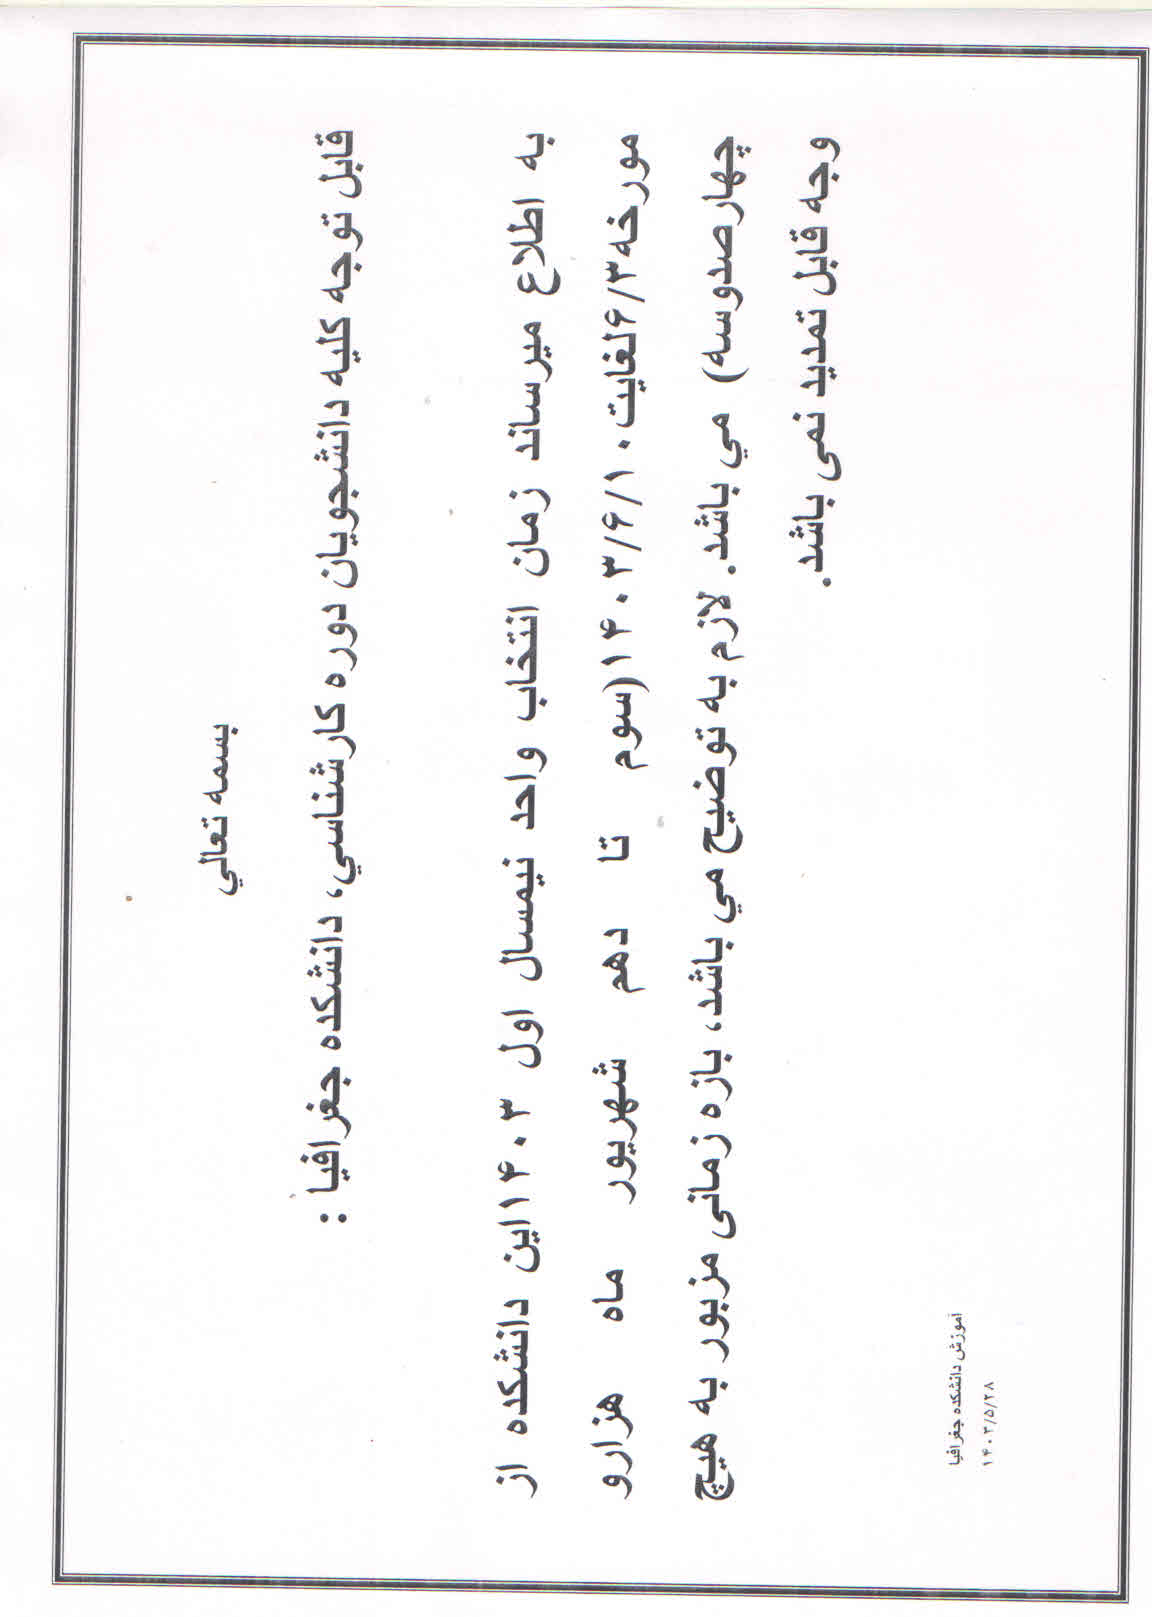 بسمه تعالي
قابل توجه كليه دانشجويان دوره كارشناسي، دانشكده جغرافيا :
به اطلاع ميرساند زمان انتخاب واحد نيمسال اول ۱۴۰۳اين دانشكده از
مورخه۶/۳لغايت۱۴۰۳/۶/۱۰(سوم تا دهم شهريور ماه هزارو
چهارصدوسه) مي باشد. لازم به توضيح مي باشد، بازه زمانی مزبور به هيچ
وجه قابل تمديد نمی باشد.
آموزش دانشكده جغرافيا
۱۴۰۳/۵/۲۸